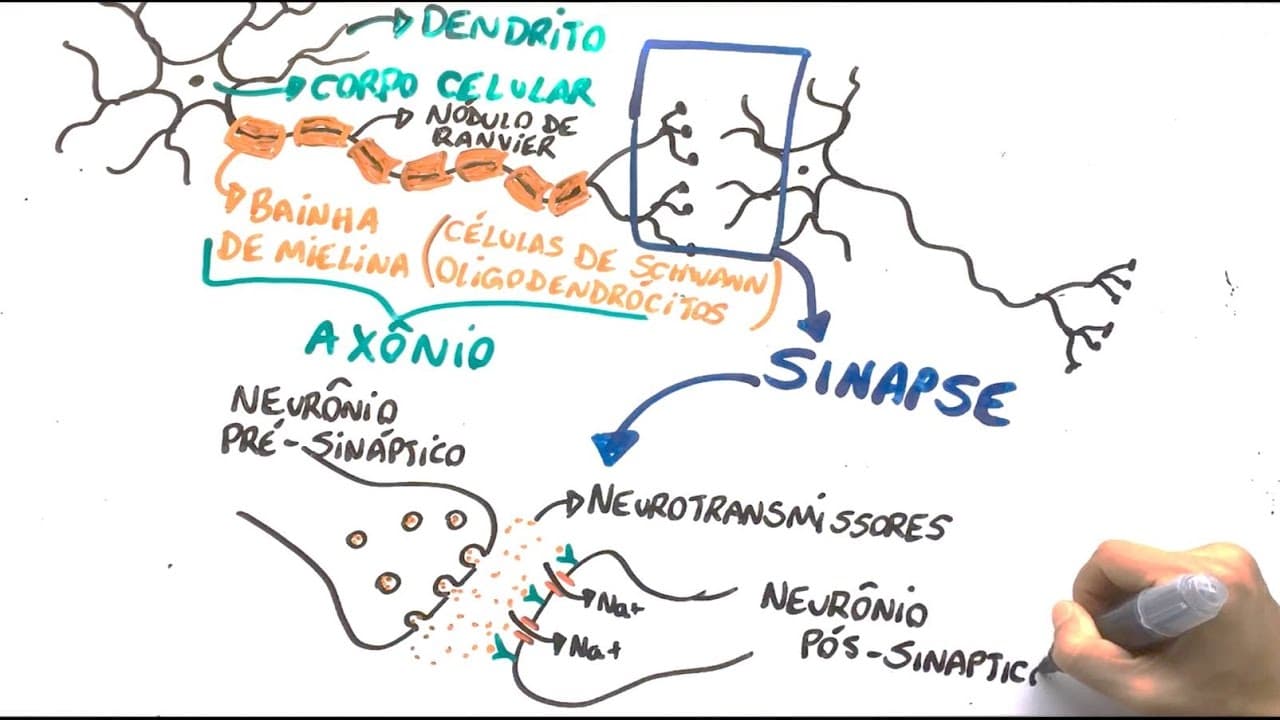 DENDRITO
CORPO CELULAR
NÓDULO DE
RANVIER
BAINHA
DE MIELINA
(CÉLULAS DE SCHWANN
OLIGODENDRÓCITOS)
AXÔNIO
SINAPSE
NEURÔNIO
PRÉ-SINÁPTICO
NEUROTRANSMISSORES
Na+
Na+
NEURÔNIO
PÓS-SINAPTIC